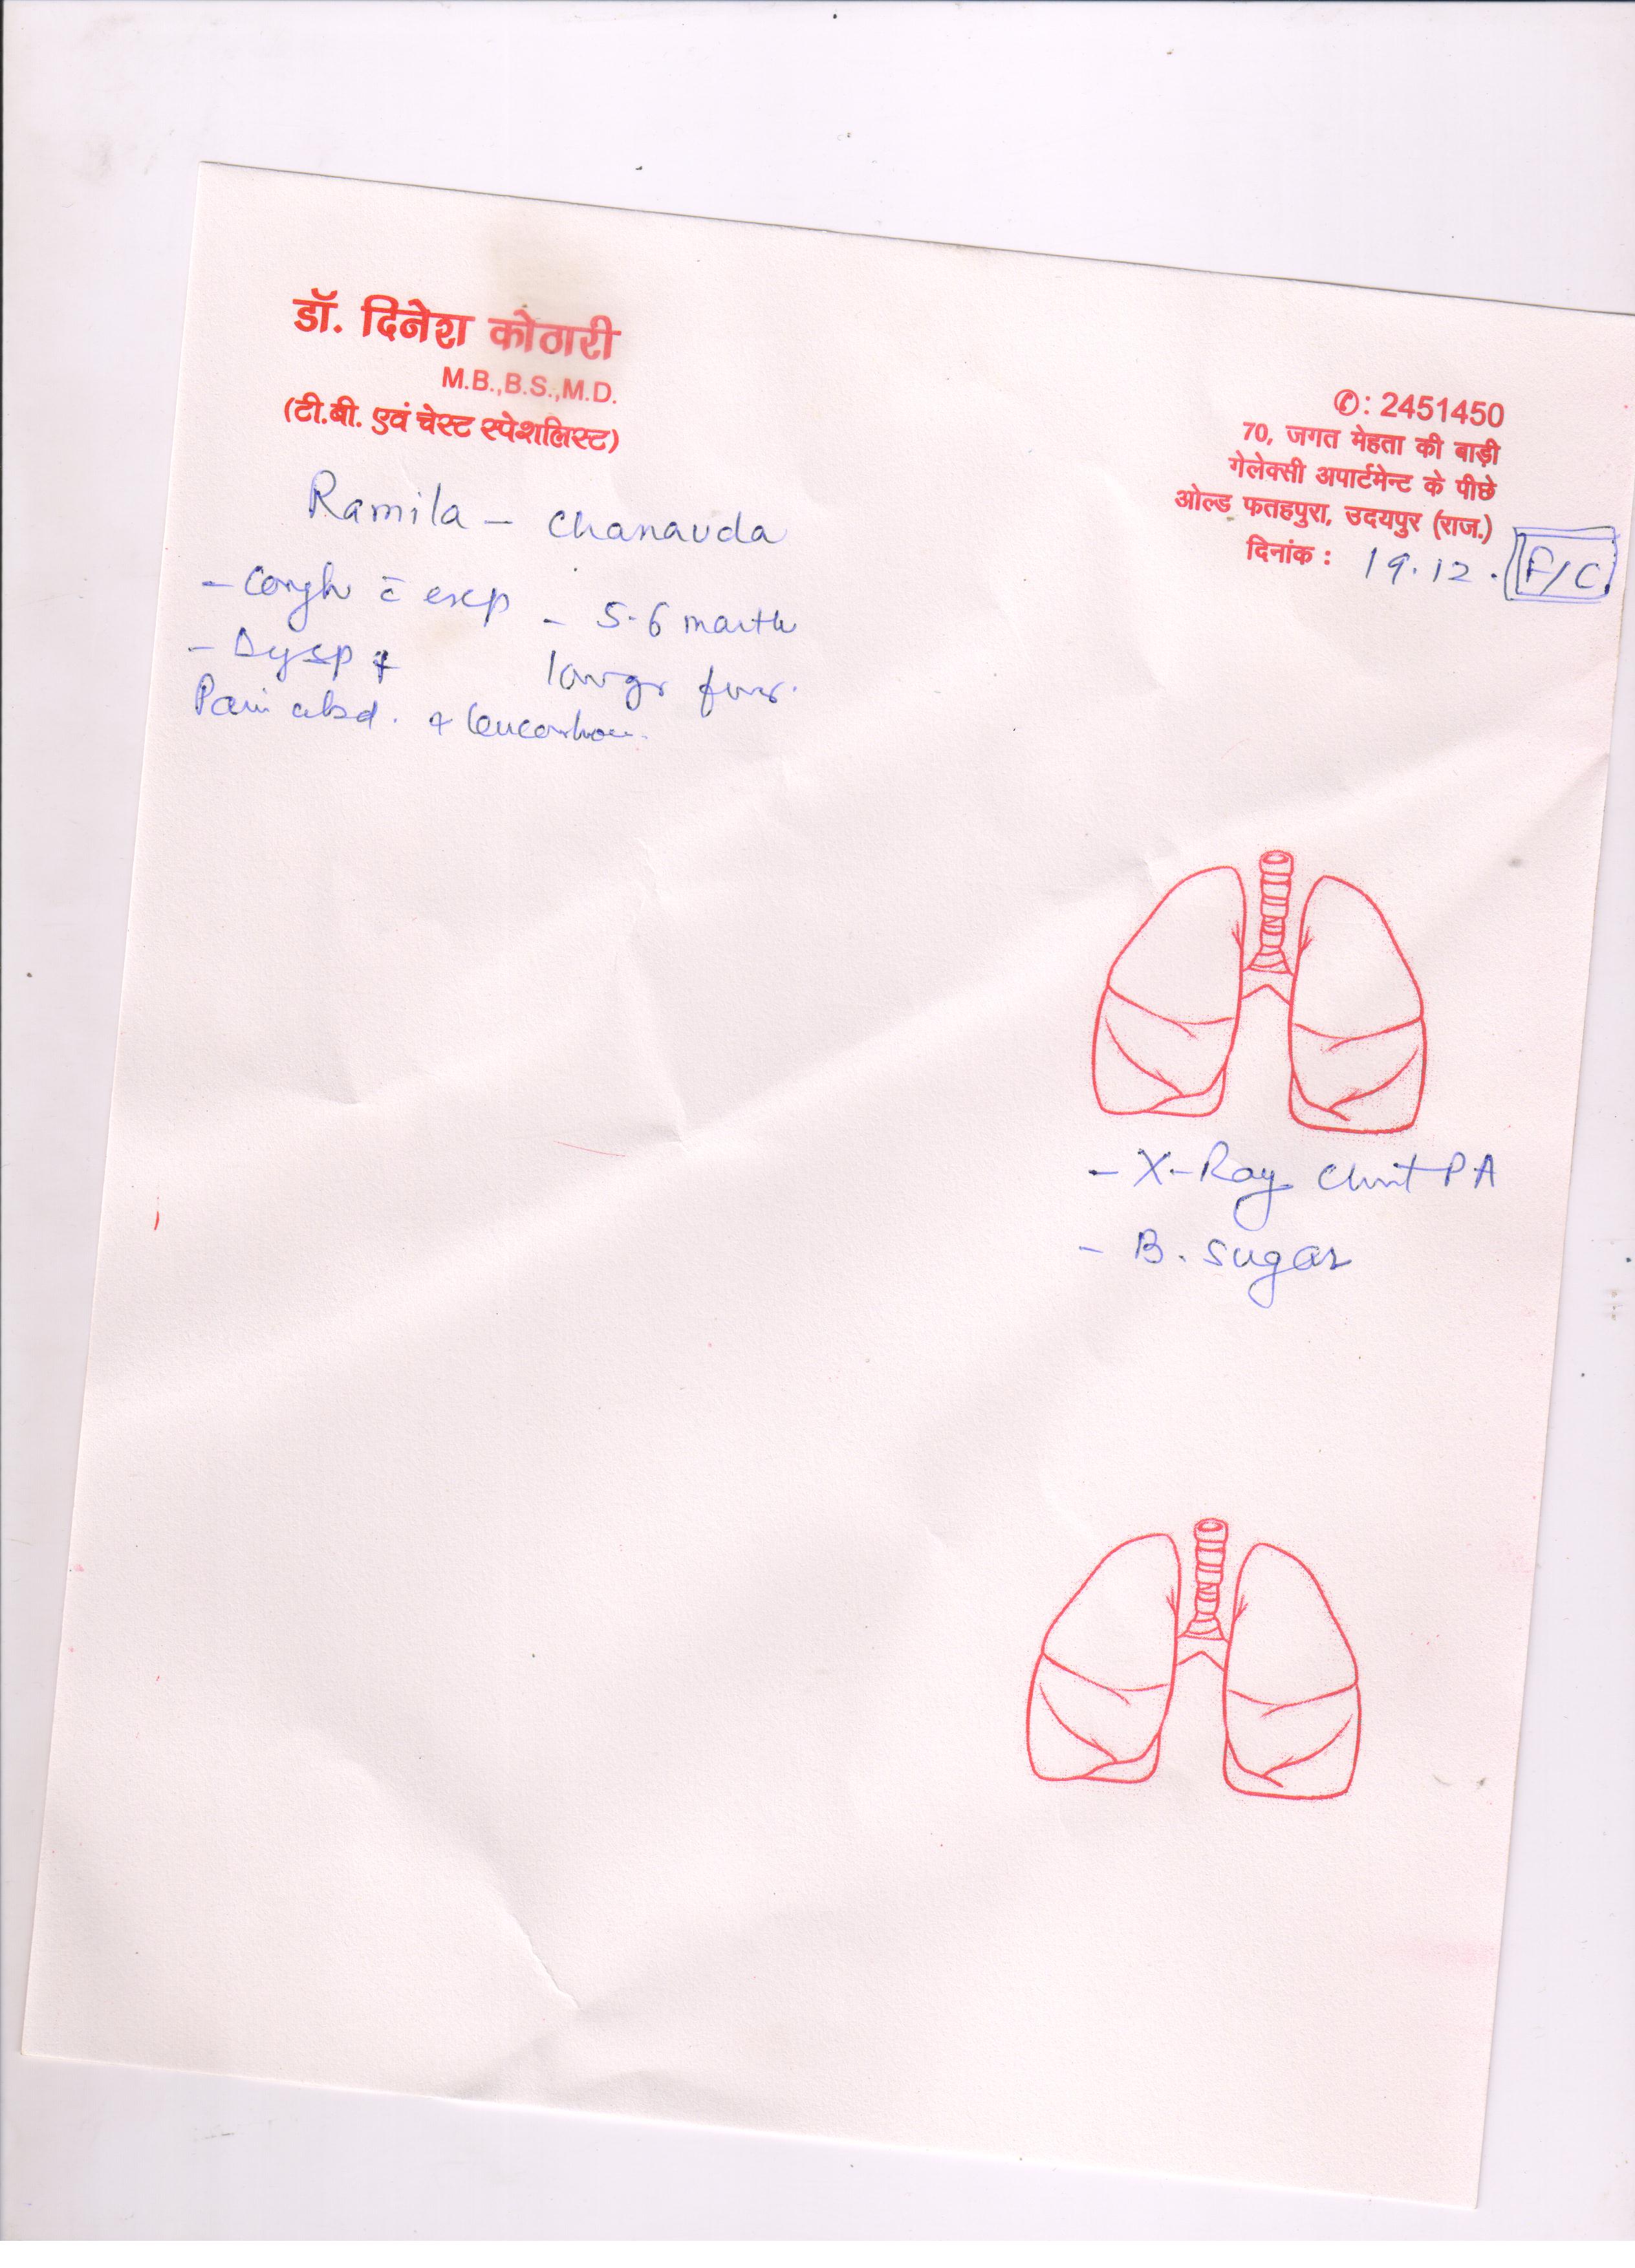 डॉ. दिनेश कोठारी
M.B.,B.S.,M.D.
(टी.बी. एवं चेस्ट स्पेशलिस्ट)
✆: 2451450
70, जगत मेहता की बाड़ी
गेलेक्सी अपार्टमेन्ट के पीछे
ओल्ड फतहपुरा, उदयपुर (राज.)
दिनांक : 19.12. F/C
Ramila - Chanauda
- Cough c̄ exp - 5-6 month
- Dysp +
Pain abd. + leucorrhoea
- X-Ray Chest PA
- B. Sugar